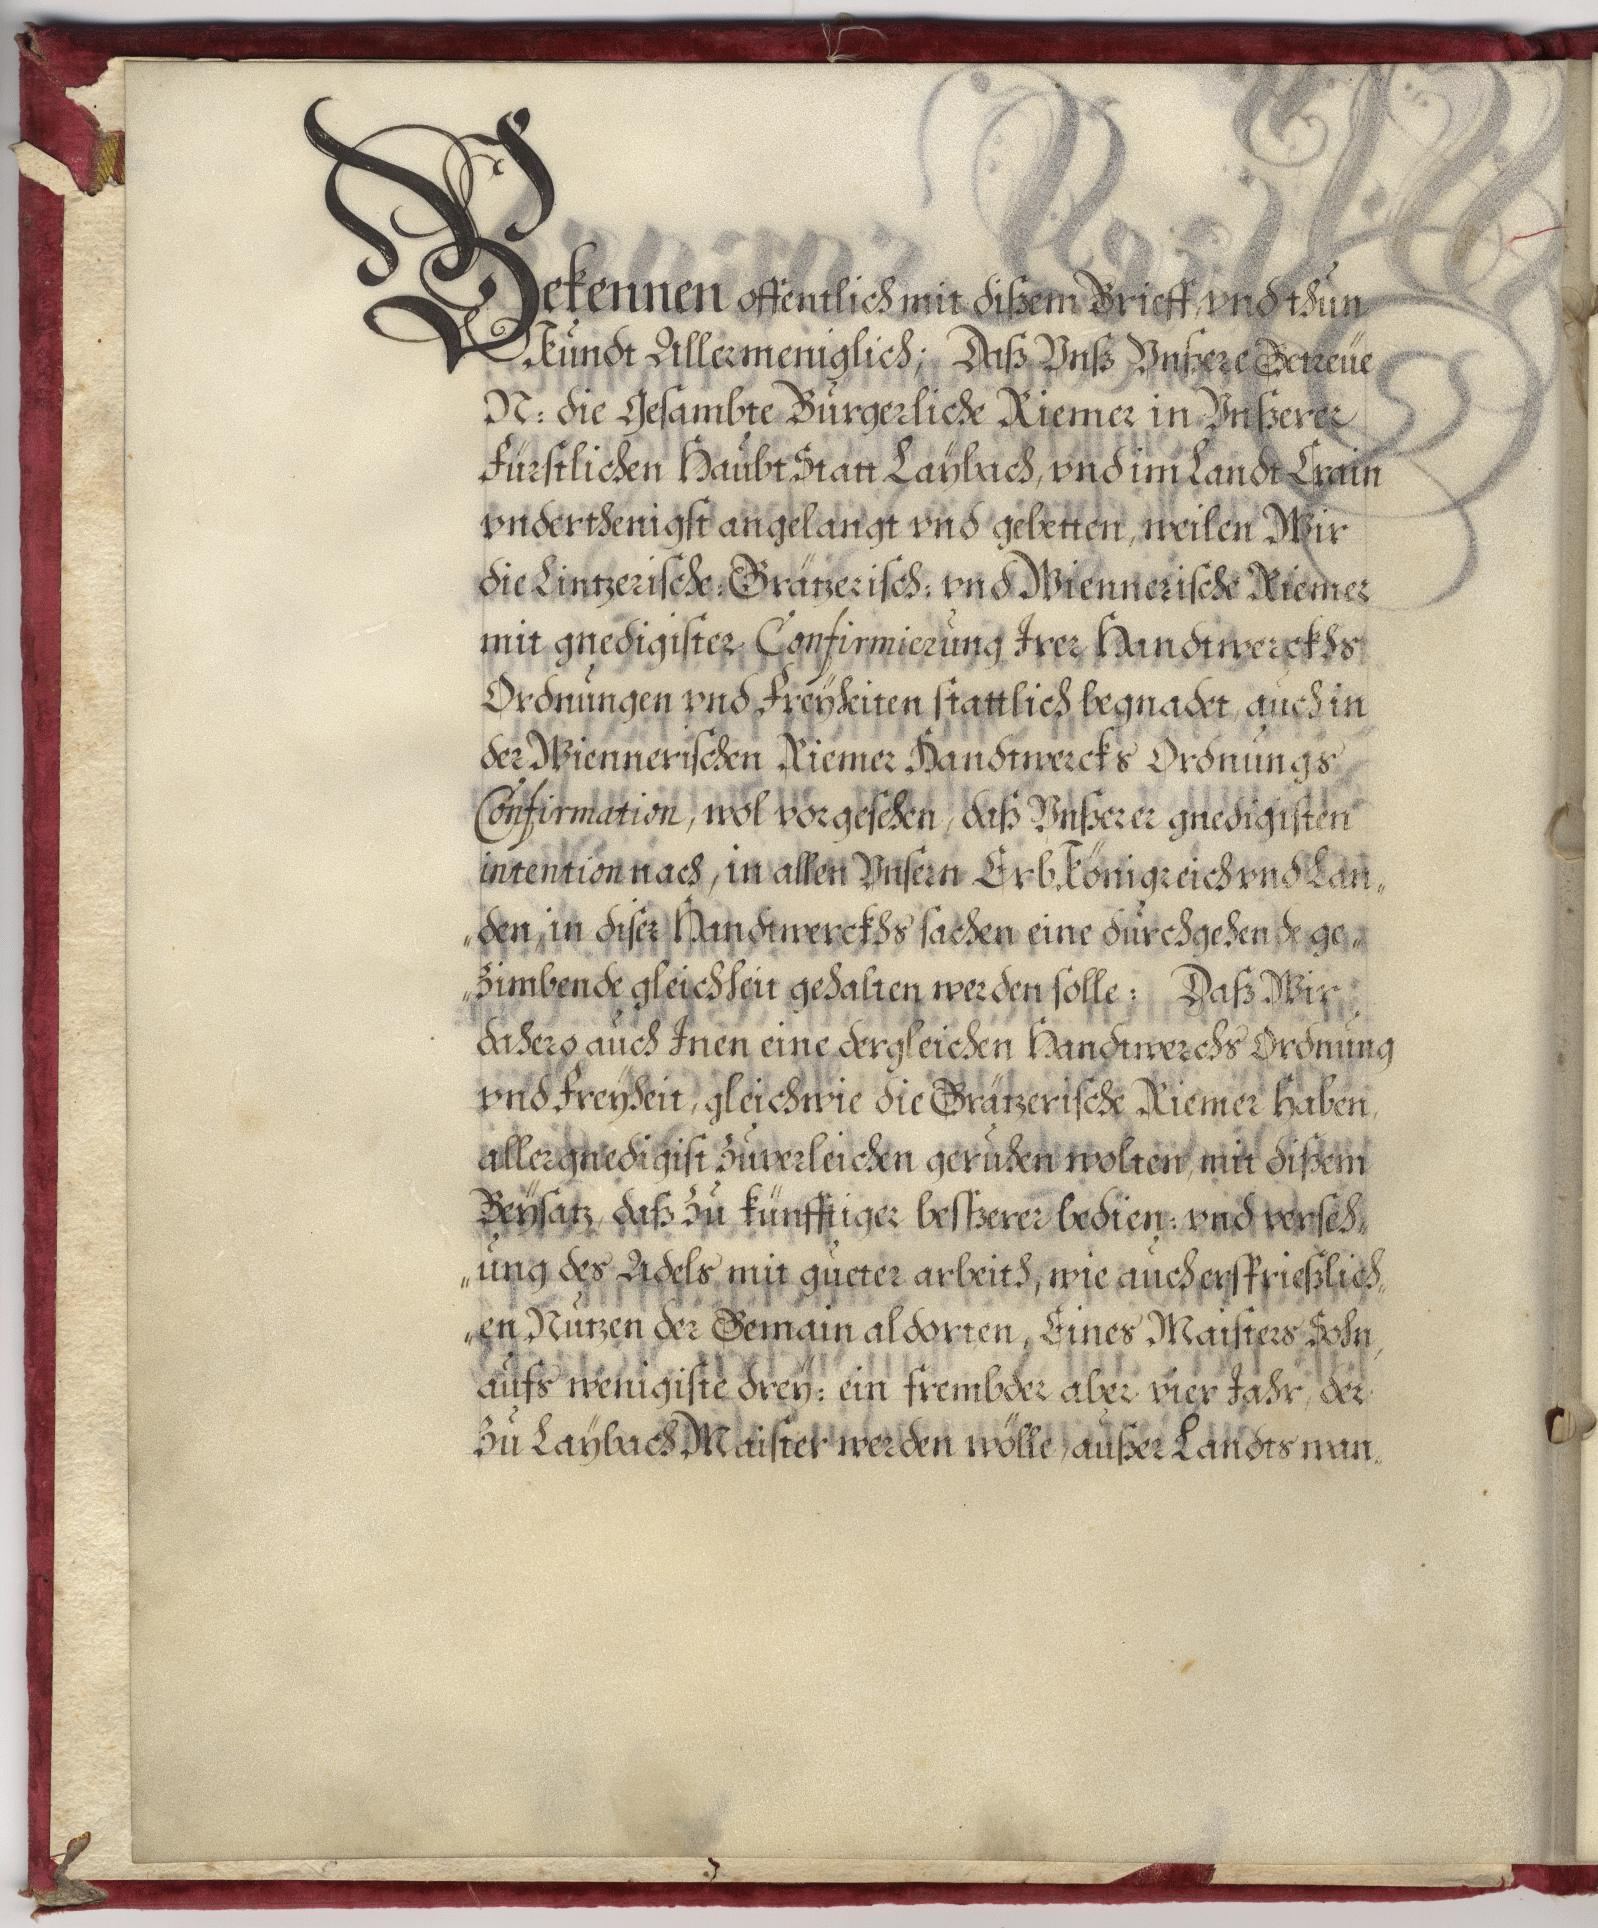 Bekennen offentlich mit dißem Brieff, vnd thun
Kundt Allermeniglich; Daß Vnß Vnßere Getreüe
N: die Gesambte Bürgerliche Riemer in Vnßerer
fürstlichen HaubtStatt Laÿbach, vnd im Landt Crain
vnderthenigst angelangt vnd gebetten, weilen Wir
die Lintzerische: Grätzerisch: vnd Wiennerische Riemer
mit gnedigister Confirmierung Irer Handtwerckhs
Ordnungen vnd Freÿheiten stattlich begnadet, auch in
der Wiennerischen Riemer Handtwercks Ordnungs
Confirmation, wol vorgesehen, daß Vnßerer gnedigisten
intention nach, in allen Vnsern Erb Königreich vnd Lan„
„den, in diser Handtwerckhs sachen eine durchgehende ge„
„zimbende gleichheit gehalten werden solle: Daß Wir
dahero auch Inen eine dergleichen Handtwerchs Ordnung
vnd Freÿheit, gleichwie die Grätzerische Riemer haben,
allergnedigist zuverleichen geruhen wolten, mit dißem
Beÿsatz, daß zu künfftiger beßserer bedien: vnd verseh„
„ung des Adels mit gueter arbeith, wie auch ersprießlich„
„en Nutzen der Gemain aldorten, Eines Maisters Sohn,
aufs wenigiste dreÿ: ein frembder aber vier Jahr, der
zu Laÿbach Maister werden wölle, außer Landts wan„